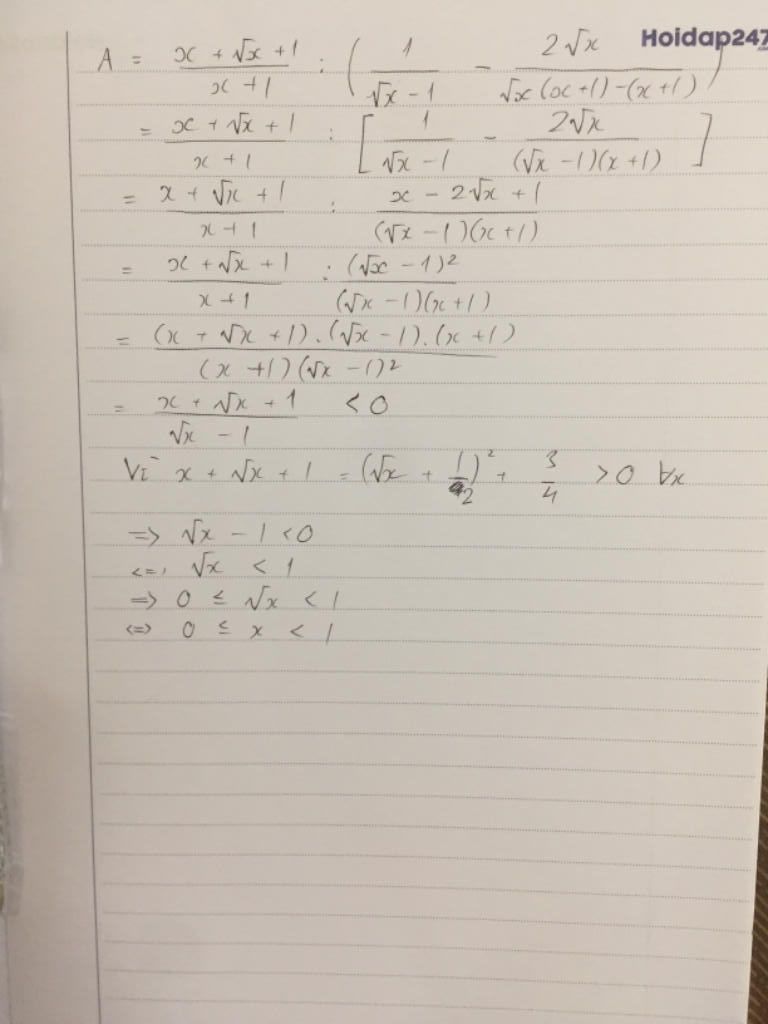 Hoidap247
A = (x + √x + 1)/(x + 1) : (1/(√x - 1) - 2√x/(√x(x + 1) - (x + 1)))
= (x + √x + 1)/(x + 1) : [1/(√x - 1) - 2√x/((√x - 1)(x + 1))]
= (x + √x + 1)/(x + 1) : (x - 2√x + 1)/((√x - 1)(x + 1))
= (x + √x + 1)/(x + 1) : (√x - 1)²/((√x - 1)(x + 1))
= (x + √x + 1).(√x - 1).(x + 1)/((x + 1)(√x - 1)²)
= (x + √x + 1)/(√x - 1) < 0
Vì x + √x + 1 = (√x + 1/2)² + 3/4 > 0 ∀x
=> √x - 1 < 0
<=> √x < 1
=> 0 ≤ √x < 1
<=> 0 ≤ x < 1